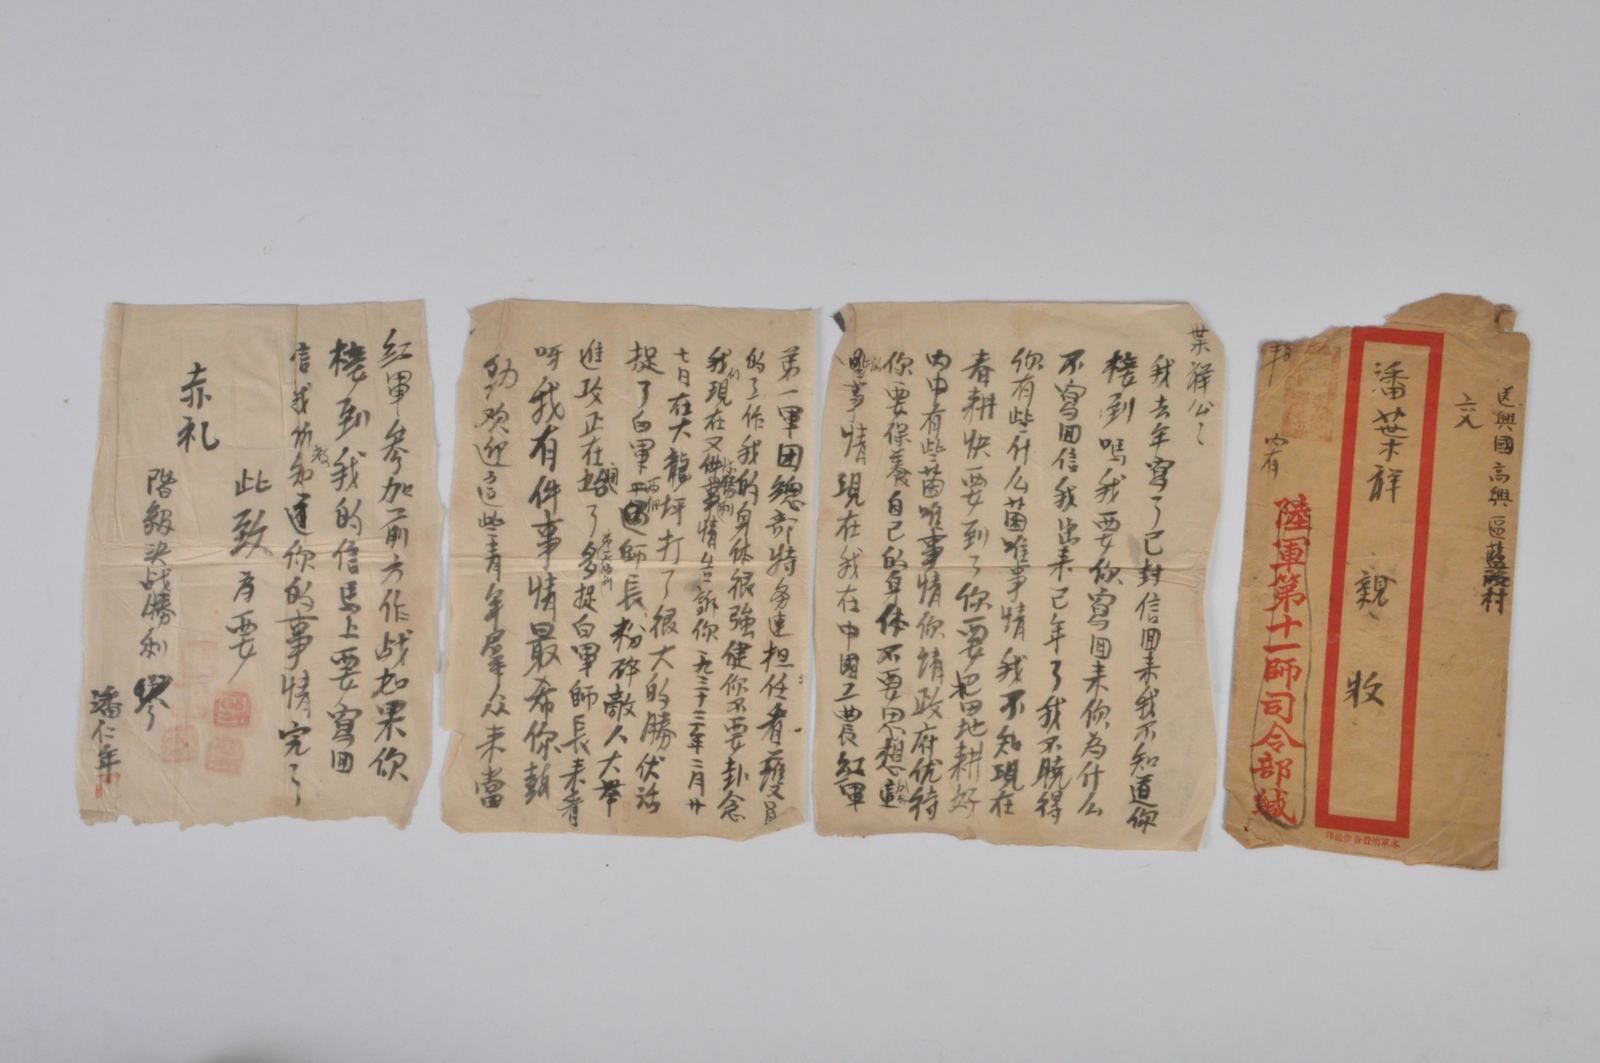 送興國高興區藍波村
六乂
潘葉祥 親收
內有
陸軍第十一師司令部緘
本軍消費合作社印
葉祥公公
我去年寫了已封信囬来我不知道你
接到嗎我要你寫囬来你為什么
不寫囬信我出来已年了我不曉得
你有些什么困难事情我不知現在
春耕快要到了你要把田地耕好
內中有些困难事情你請政府优待
你要保養自己的身体不要思想這
些事情現在我在中國工農紅軍
第一軍团總部特务連担任看護員
的工作我的身体很強健你不要卦念
我們現在又件勝利事情告訴你一九三十三年二月廿
七日在大龍坪打了很大的勝伏活
捉了白軍两個師長粉碎敵人大举
進攻正在開始了多捉白軍師長来看
呀我有件事情最希你鼓
动欢迎這些青年羣众来當
紅軍参加前方作战如果你
接到我的信馬上要寫囬
信我仂知道你的事情完了
此致為要
赤礼
階級決战勝利
潘仁年